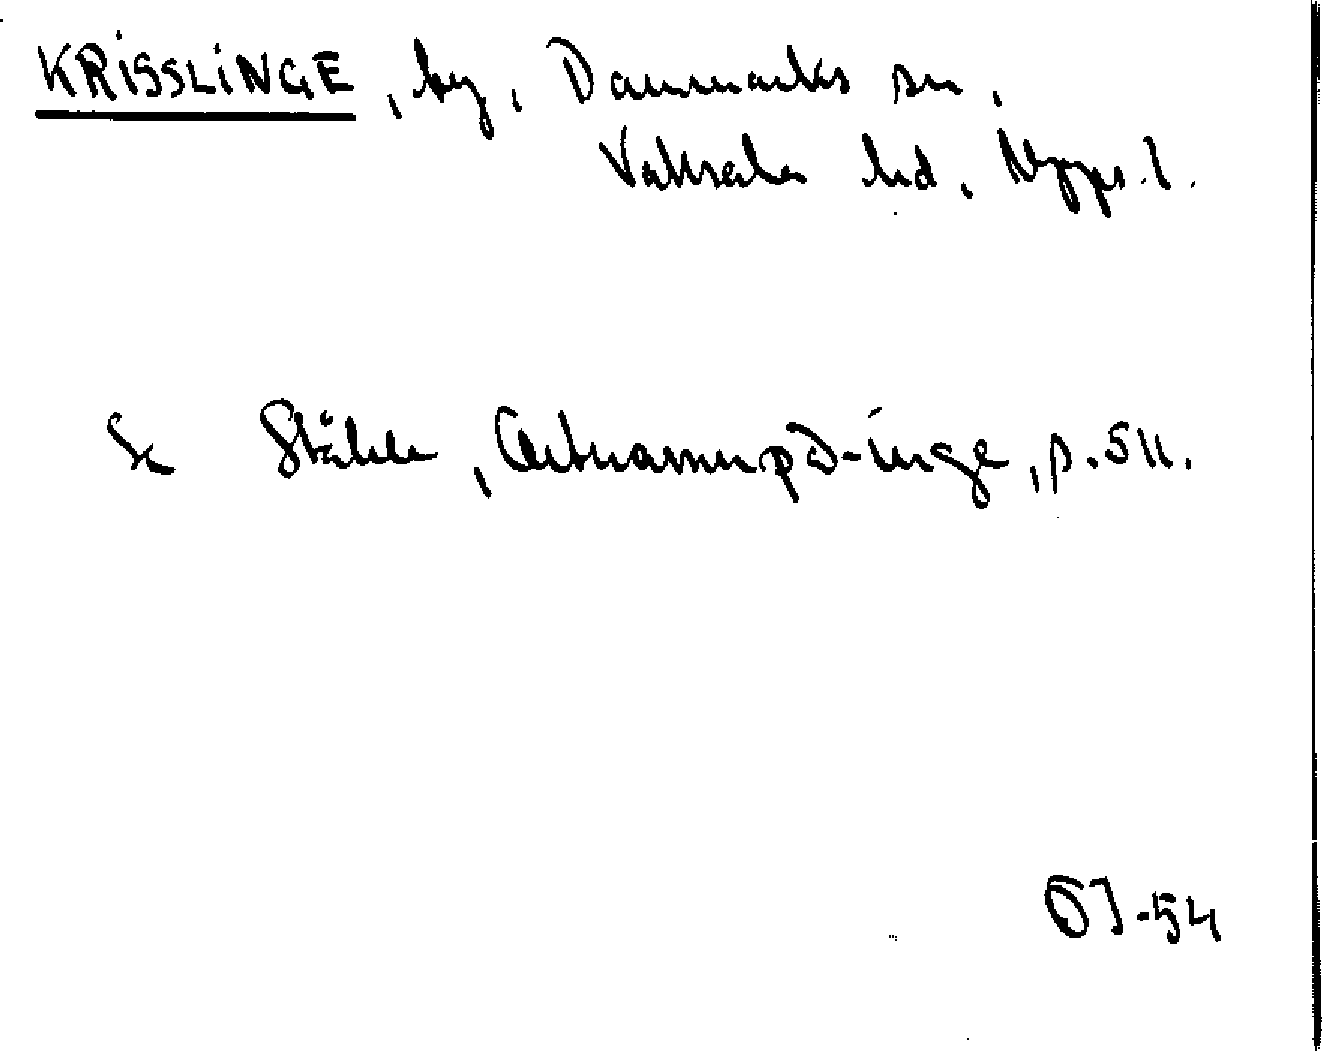 KRISSLINGE, by, Danmarks sn,
Vaksala hd, Upps. l.
Se Ståhle, Ortnamn på -inge, p. 511.
ÖJ-54